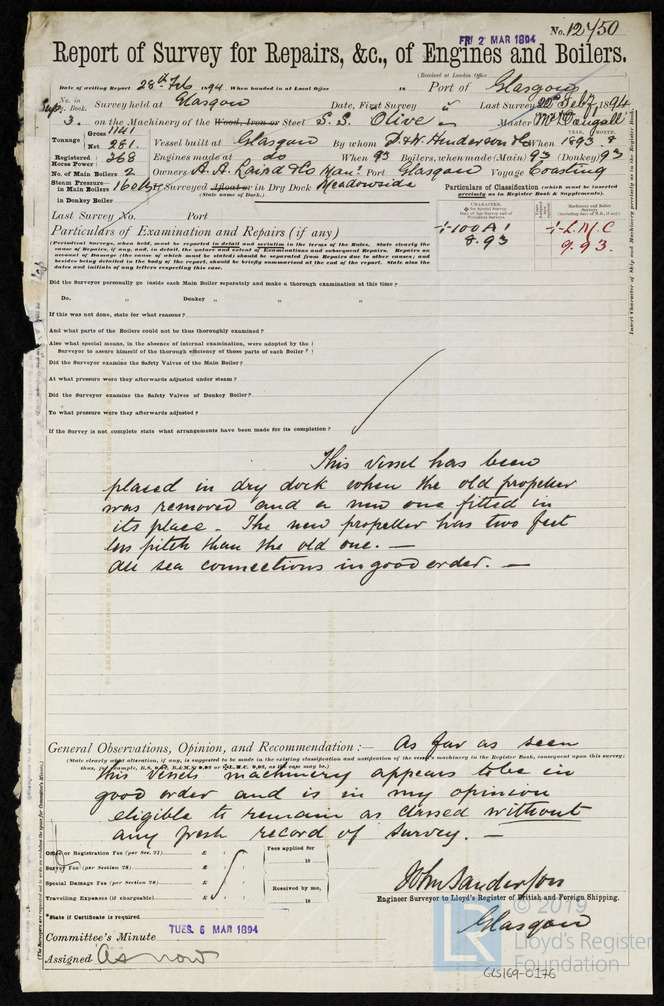 No. 12450
FRI 2 MAR 1894
Report of Survey for Repairs, &c., of Engines and Boilers.
(Received at London Office
Date of writing Report 28th Feb 1894 When handed in at Local Office 18 Port of Glasgow
No. in Sup. Book. Survey held at Glasgow Date, First Survey Last Survey Feby 1894
3. on the Machinery of the Wood, Iron or Steel S.S. Olive Master McDougall
Tonnage Gross 1141 Net 281 Vessel built at Glasgow By whom D. & W. Henderson & Co When 1893 8
YEAR. MONTH.
Registered Horse Power 268 Engines made at do When 93 Boilers, when made (Main) 93 (Donkey) 93
No. of Main Boilers 2 Owners A. A. Laird & Co Port Glasgow Voyage Coasting
Steam Pressure in Main Boilers 160 lbs If Surveyed Afloat or in Dry Dock Meadowside
(State name of Dock.)
in Donkey Boiler
Particulars of Classification (which must be inserted precisely as in Register Book & Supplements).
Last Survey No. Port
CHARACTER.
Machinery and Boiler Surveys (including date of N.B., if any).
+100A1 8.93
+L.M.C 9.93.
Insert Character of Ship and Machinery precisely as in the Register Book.
Particulars of Examination and Repairs (if any)
(Periodical Surveys, when held, must be reported in detail and seriatim in the terms of the Rules. State clearly the
cause of Repairs, if any, and, in detail, the nature and extent of Examinations and subsequent Repairs. Repairs on
account of Damage (the cause of which must be stated) should be separated from Repairs due to other causes; and
besides being detailed in the body of the report, should be briefly summarised at the end of the report. State also the
dates and initials of any letters respecting this case.
Did the Surveyor personally go inside each Main Boiler separately and make a thorough examination at this time?
Do. " Donkey " " "
If this was not done, state for what reasons?
And what parts of the Boilers could not be thus thoroughly examined?
Also what special means, in the absence of internal examination, were adopted by the
Surveyor to assure himself of the thorough efficiency of those parts of each Boiler?
Did the Surveyor examine the Safety Valves of the Main Boiler?
At what pressure were they afterwards adjusted under steam?
Did the Surveyor examine the Safety Valves of Donkey Boiler?
To what pressure were they afterwards adjusted?
If the Survey is not complete state what arrangements have been made for its completion?
This vessel has been
placed in dry dock when the old propeller
was removed and a new one fitted in
its place. The new propeller has two feet
less pitch than the old one. —
All sea connections in good order. —
General Observations, Opinion, and Recommendation :— As far as seen
(State clearly what alteration, if any, is suggested to be made in the existing classification and notification of the vessel's machinery in the Register Book, consequent upon this survey;
this vessels machinery appears to be in
good order and is in my opinion
eligible to remain as classed without
any fresh record of survey. —
Office or Registration Fee (per Sec. 27) £ : :
Survey Fee (per Section 28) £ : :
Special Damage Fee (per Section 28) £ : :
Travelling Expenses (if chargeable) £ : :
Fees applied for
18
Received by me,
18
John Sanderson
Engineer Surveyor to Lloyd's Register of British and Foreign Shipping.
*State if Certificate is required
Glasgow
Committee's Minute TUES. 6 MAR 1894
Assigned As now
© 2019
LR
Lloyd's Register
Foundation
GLS169-0176